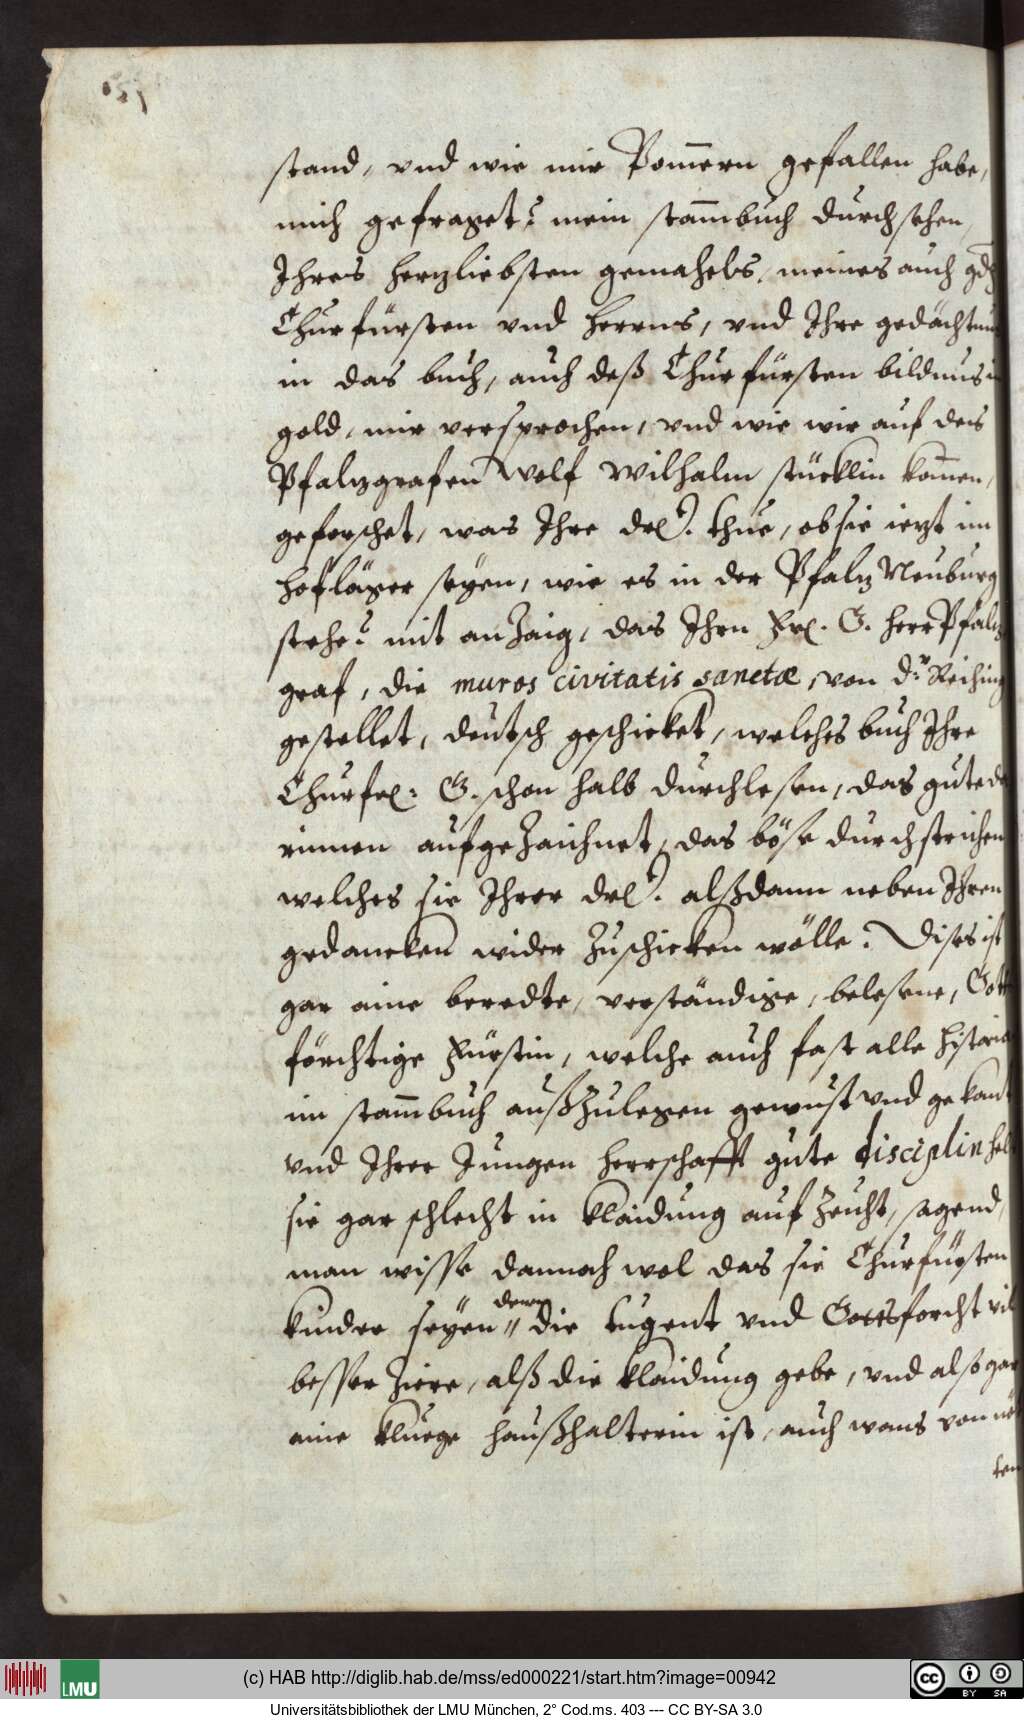 stand, vnd wie mir Pom̄ern gefallen habe,
mich gefraget? mein stam̄buch durchsehen,
Ihres herzliebsten gemahels, meines auch gd
Churfürsten vnd herrns, vnd Ihre gedächtnu
in das buch, auch deß Churfürsten bildnus i
gold, mir versprochen, vnd wie wir auf des
Pfalzgrafen Wolf Wilhalm stücklin kom̄en,
geforschet, was Ihre drl. thue, ob sie iezt im
hofläger seyen, wie es in der Pfalz Neuburg
stehe? mit anzaig, das Ihrn Frl. G. herr Pfalz
graf, die muros civitatis sanctæ, von dr. Reihing
gestellet, deutsch geschicket, welches buch Ihre
Churfrl: G. schon halb durchlesen, das gute da
rinnen aufgezaichnet, das böse durchstrichen
welches sie Ihrer drl. alßdann neben Ihren
gedancken wider zuschicken wölle. Dises ist
gar aine beredte, verständige, belesene, Gott
förchtige Fürstin, welche auch fast alle historia
im stam̄buch außzulegen gewust vnd gekant
vnd Ihrer Jungen herrschafft gute disciplin hel
sie gar schlecht in klaidung auf zeucht, sagend,
man wisse dannoch wol das sie Churfürsten
denn
kinder seyen // die tugent vnd Gottsforcht vil
besser ziere, alß die klaidung gebe, vnd also gar
aine kluege haußhalterin ist, auch wans von nö
ten
(c) HAB http://diglib.hab.de/mss/ed000221/start.htm?image=00942
LMU
cc BY SA
Universitätsbibliothek der LMU München, 2° Cod.ms. 403 --- CC BY-SA 3.0